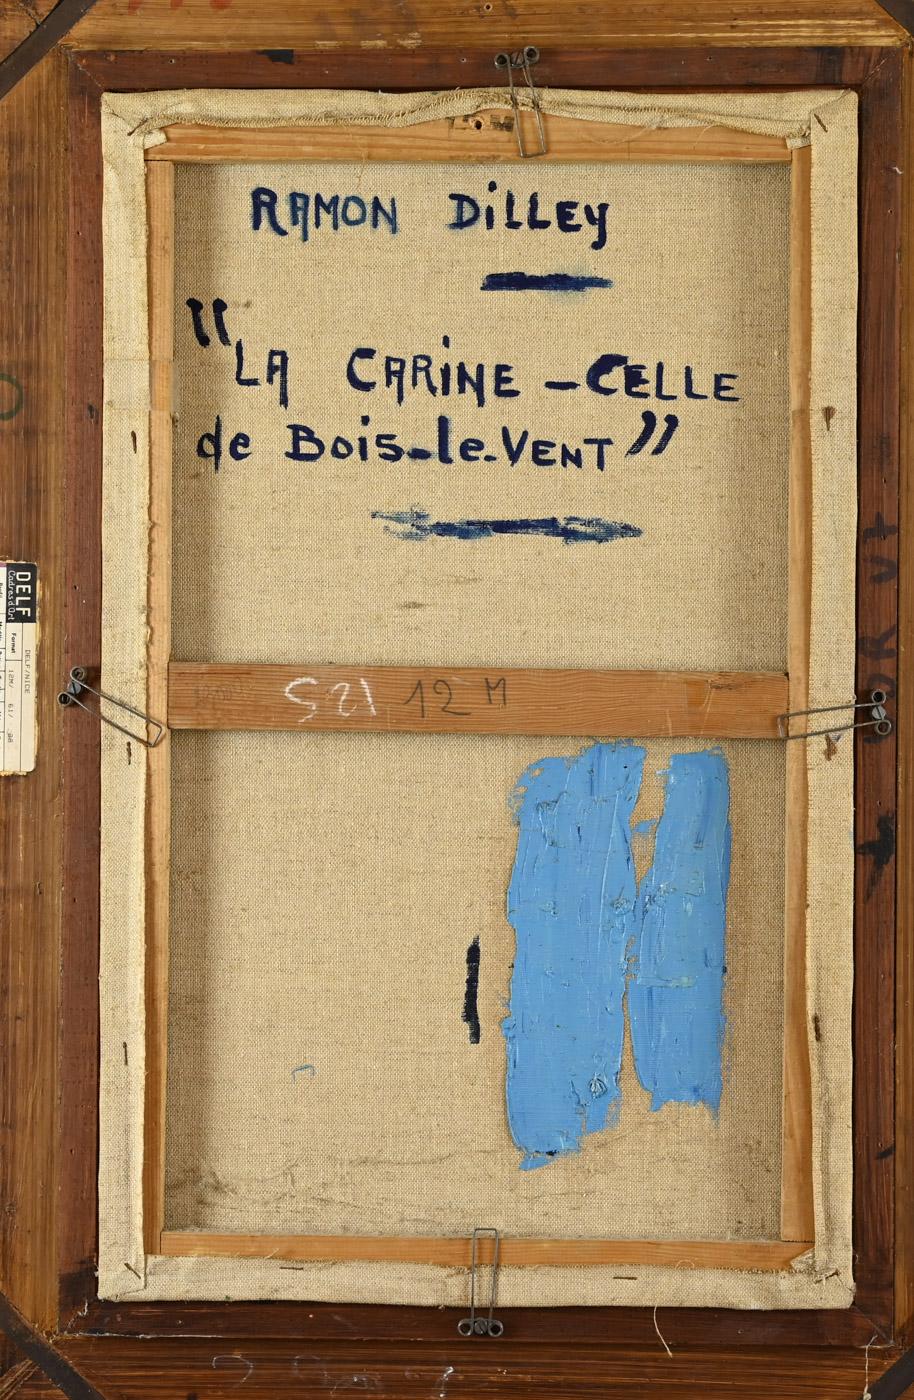 RAMON DiLLEY
"LA CARiNE – CELLE
de Bois-le-VENT"
521 12 M
DELF
Cadres d'Art
DELF/NICE
Format
12M/ 61/